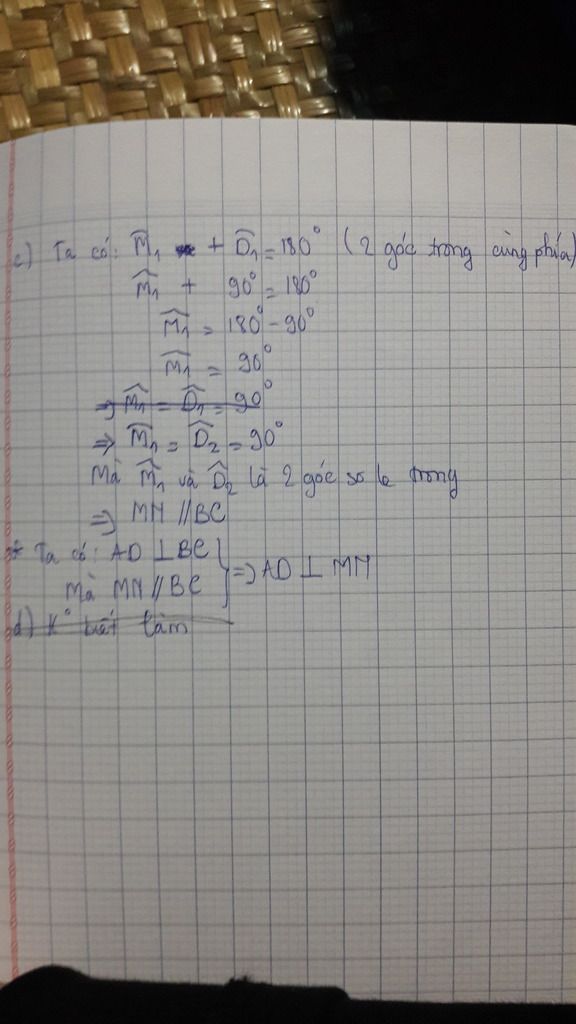 c) Ta có: M̂₁ + D̂₁ = 180° (2 góc trong cùng phía)
M̂₁ + 90° = 180°
M̂₁ = 180° - 90°
M̂₁ = 90°
=> M̂₁ = D̂₁ = 90°
=> M̂₁ = D̂₂ = 90°
Mà M̂₁ và D̂₂ là 2 góc so le trong
=> MN // BC
* Ta có: AD ⊥ BC
Mà MN // BC } => AD ⊥ MN
d) K° biết làm